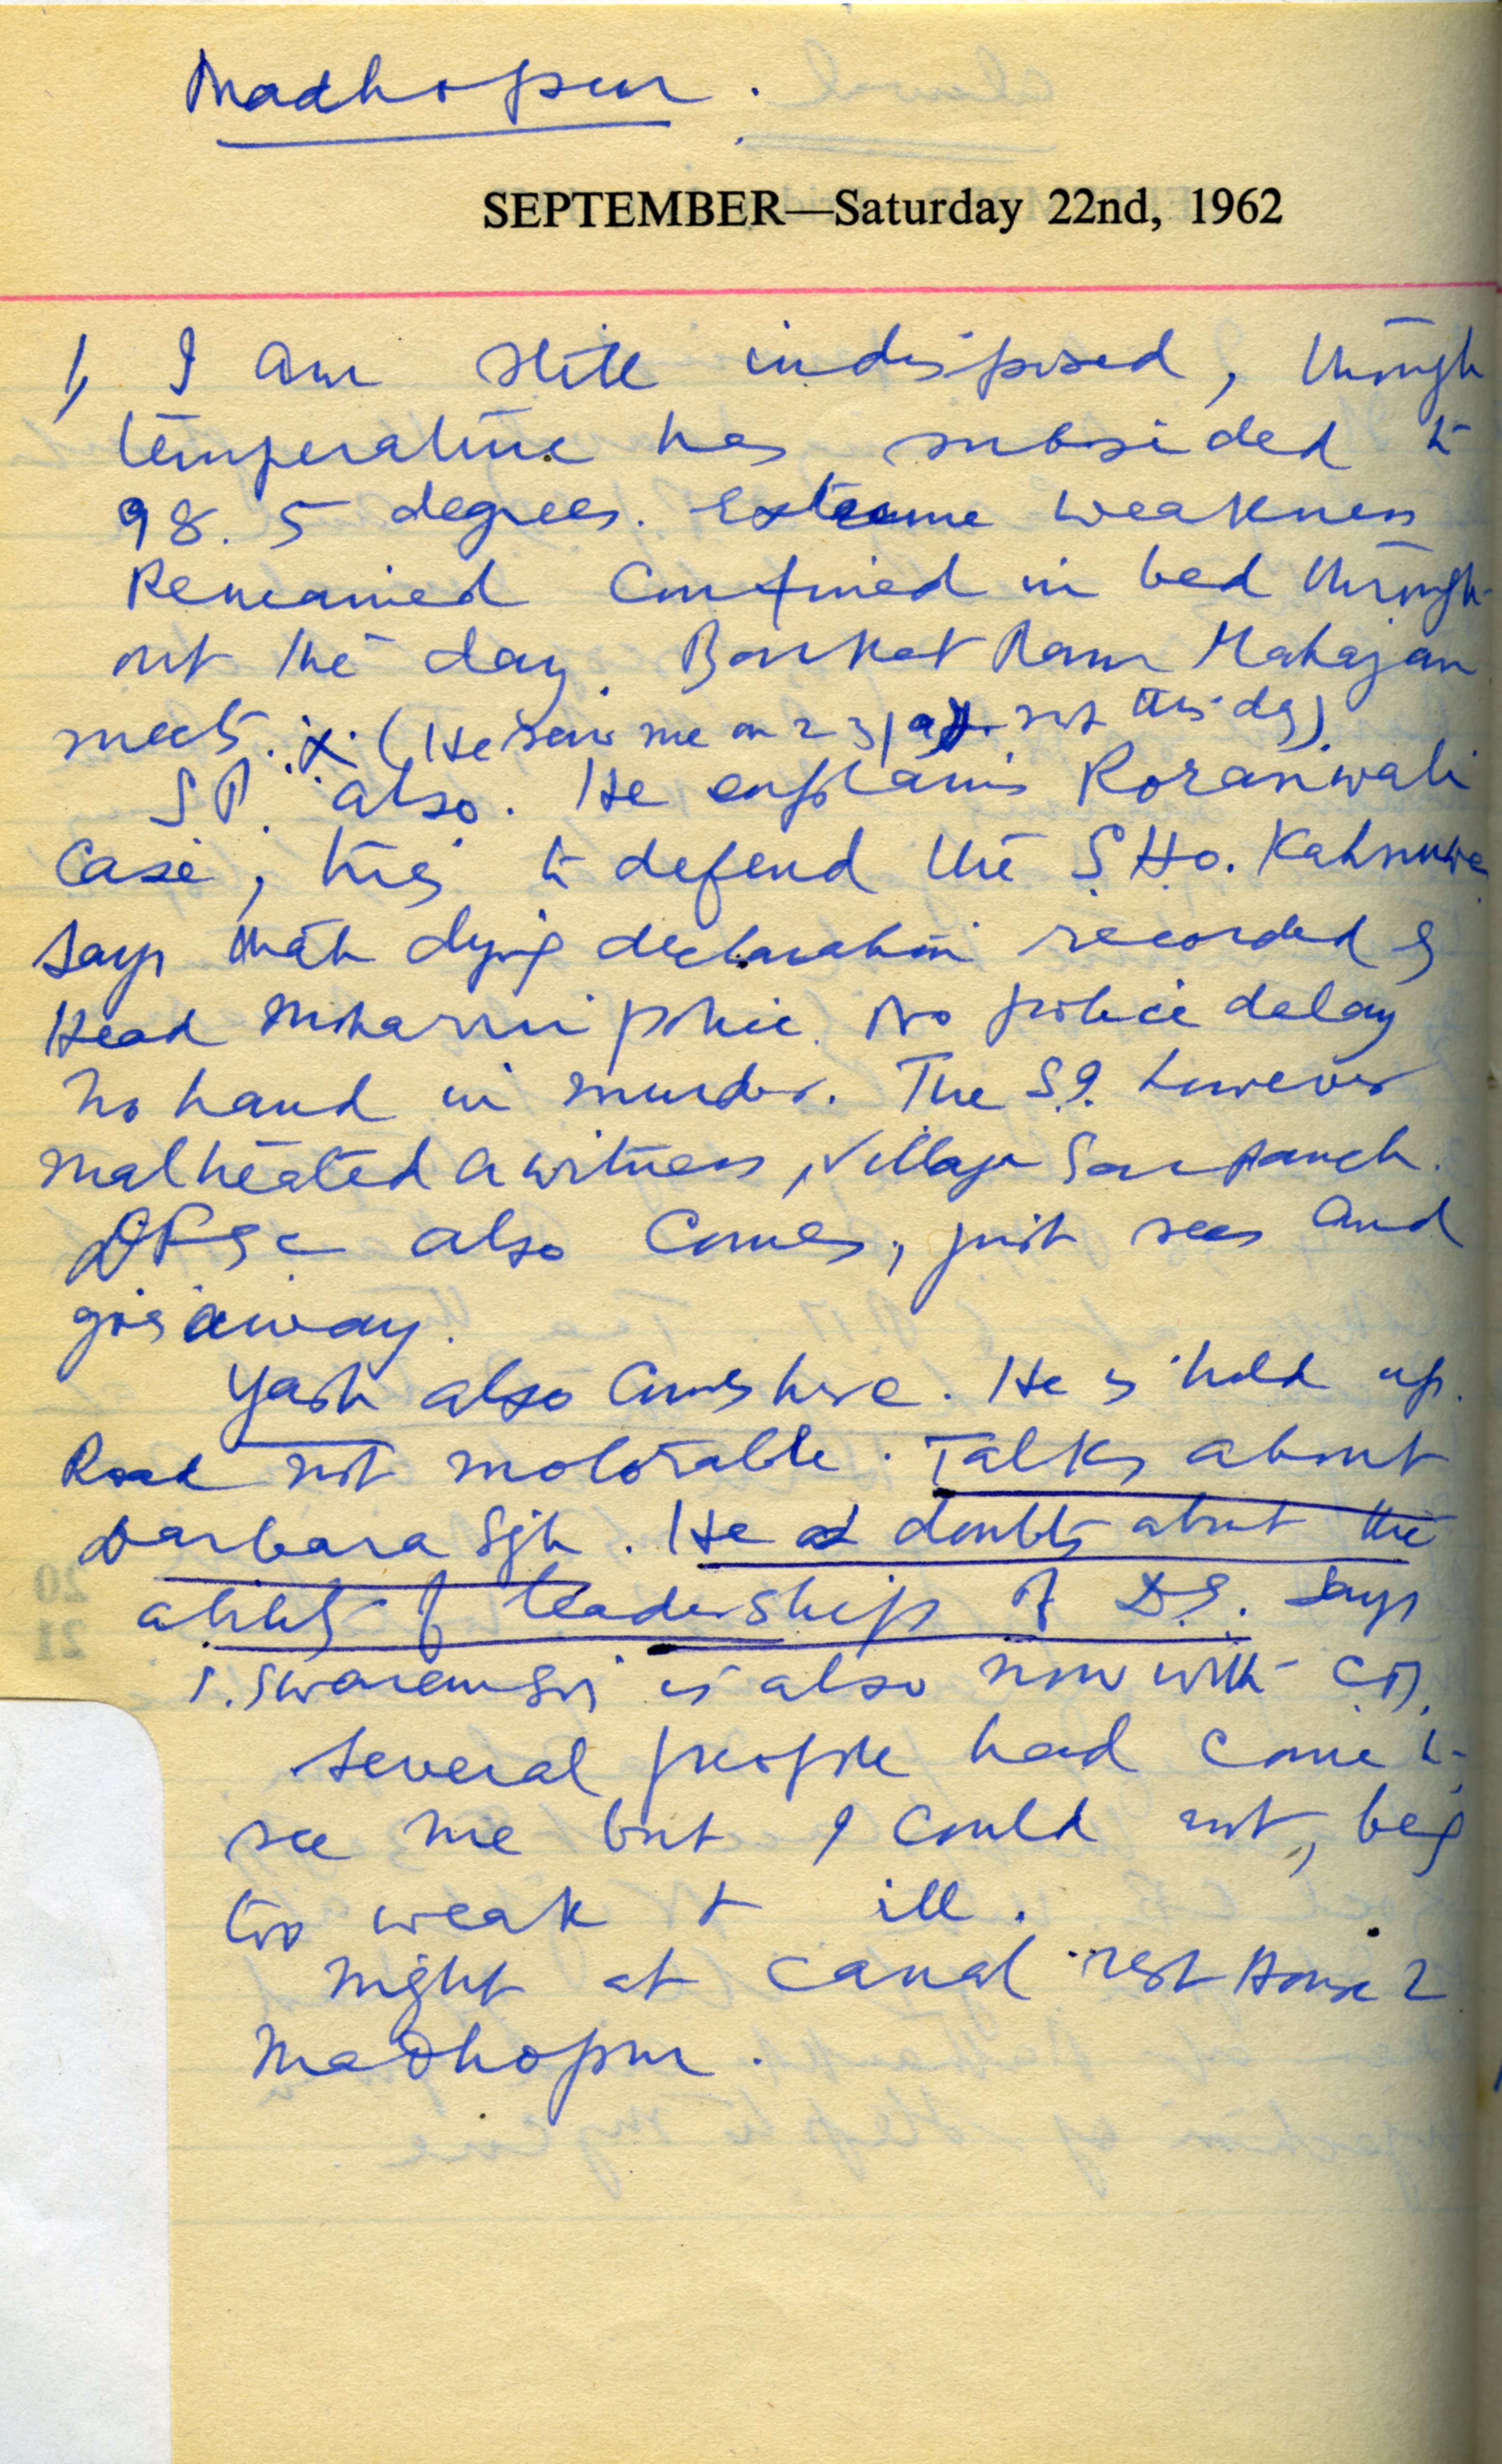 Madhopur.
SEPTEMBER—Saturday 22nd, 1962
1, I am still indisposed, though
temperature has subsided to
98.5 degrees. Extreme weakness
Remained confined in bed through-
out the day. Ram Mahajan
meets. x. (He saw me on 23/9, not this day)
S.P. also. He explains Roranwali
case, tries to defend the S.H.O. Kahnuwan
says that dying declaration recorded by
Head Moharrir police. No police delay
no hand in murder. The S.I. however
maltreated a witness, village Sarpanch.
also comes, just sees and
goes away.
Yash also comes here. He is held up.
Road not motorable. Talks about
Darbara Sgh. He doubts about the
ability of leadership of D.S. Says
S. Swaran Sgh is also now with CM.
Several people had come to
see me but I could not, being
too weak & ill.
Night at canal rest House 2
Madhopur.